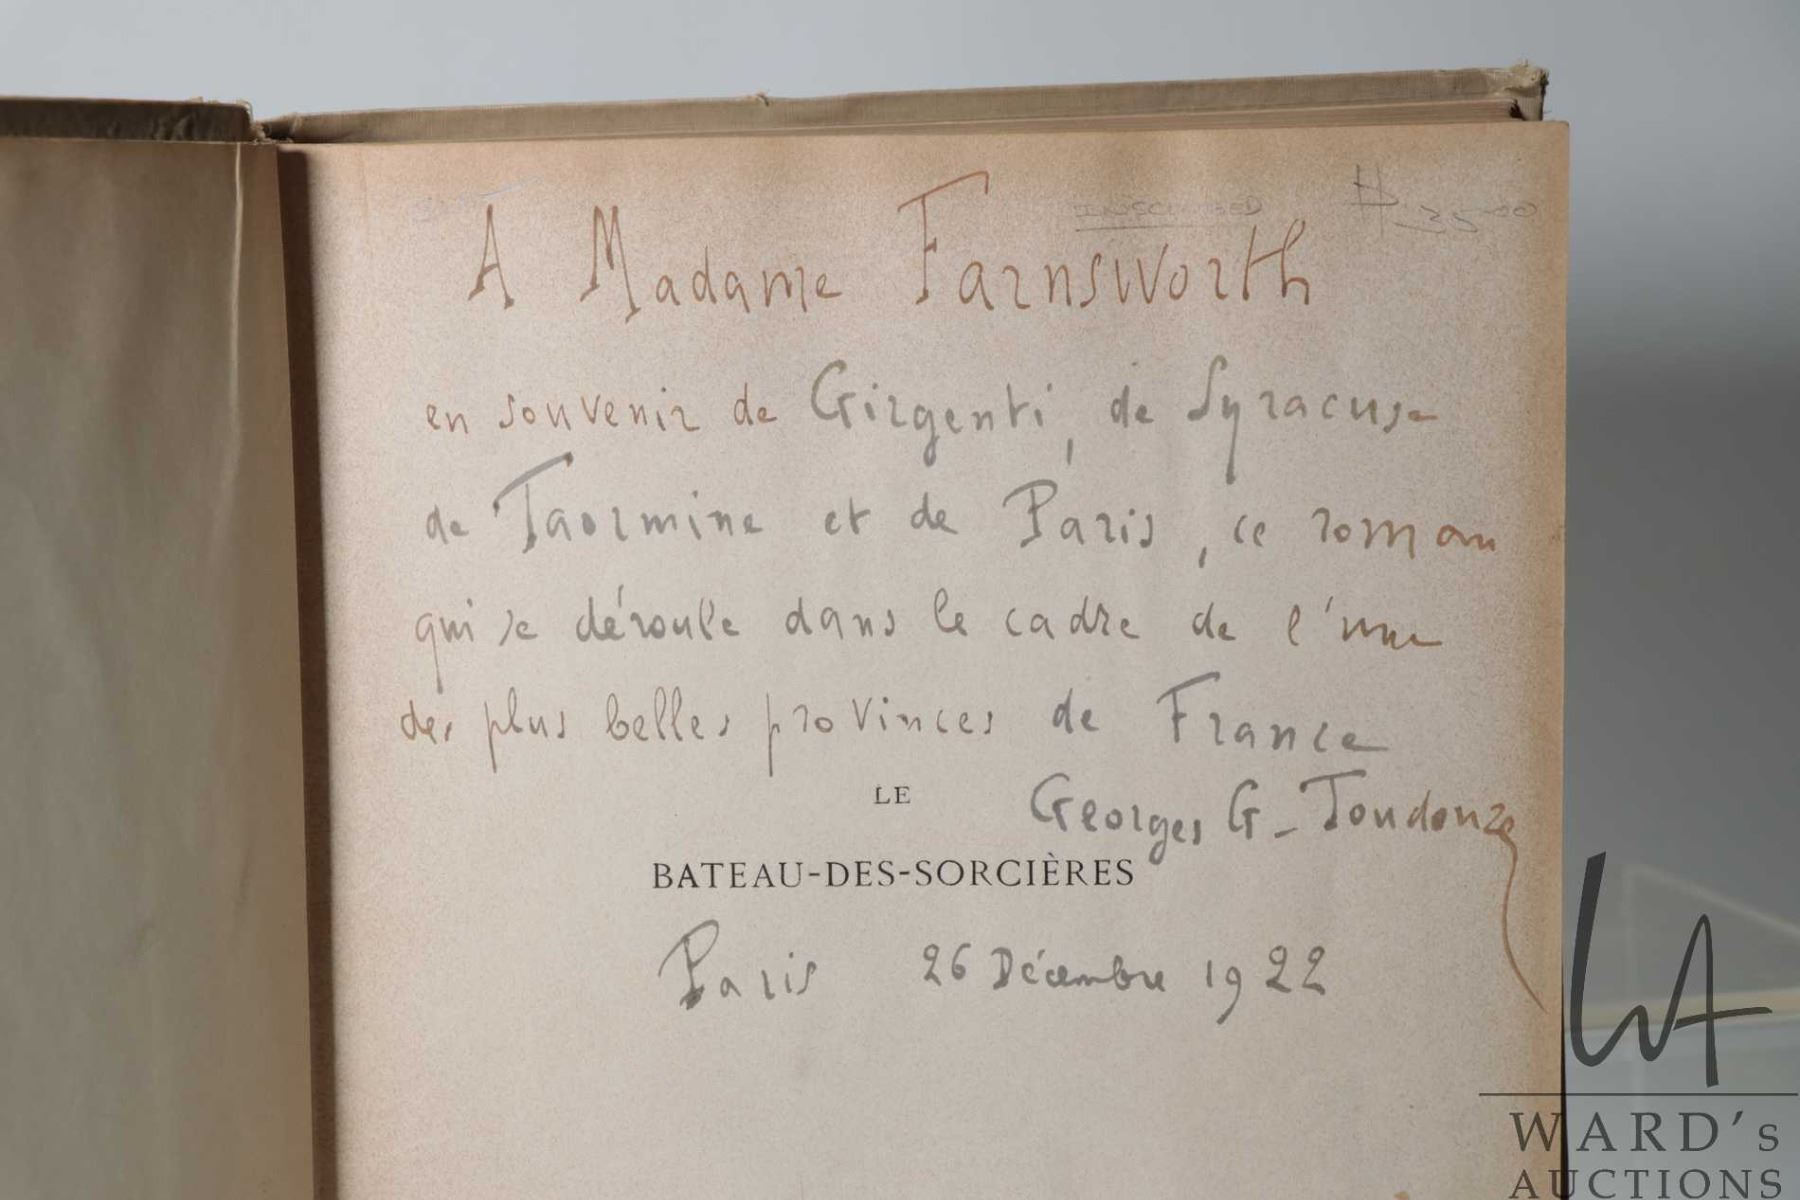 INSCRIBED
A Madame Farnsworth
en souvenir de Girgenti, de Syracuse
de Taormine et de Paris, ce roman
qui se déroule dans le cadre de l'une
des plus belles provinces de France
LE
Georges G-Toudouze
BATEAU-DES-SORCIÈRES
Paris 26 Décembre 1922
WARD's
AUCTIONS